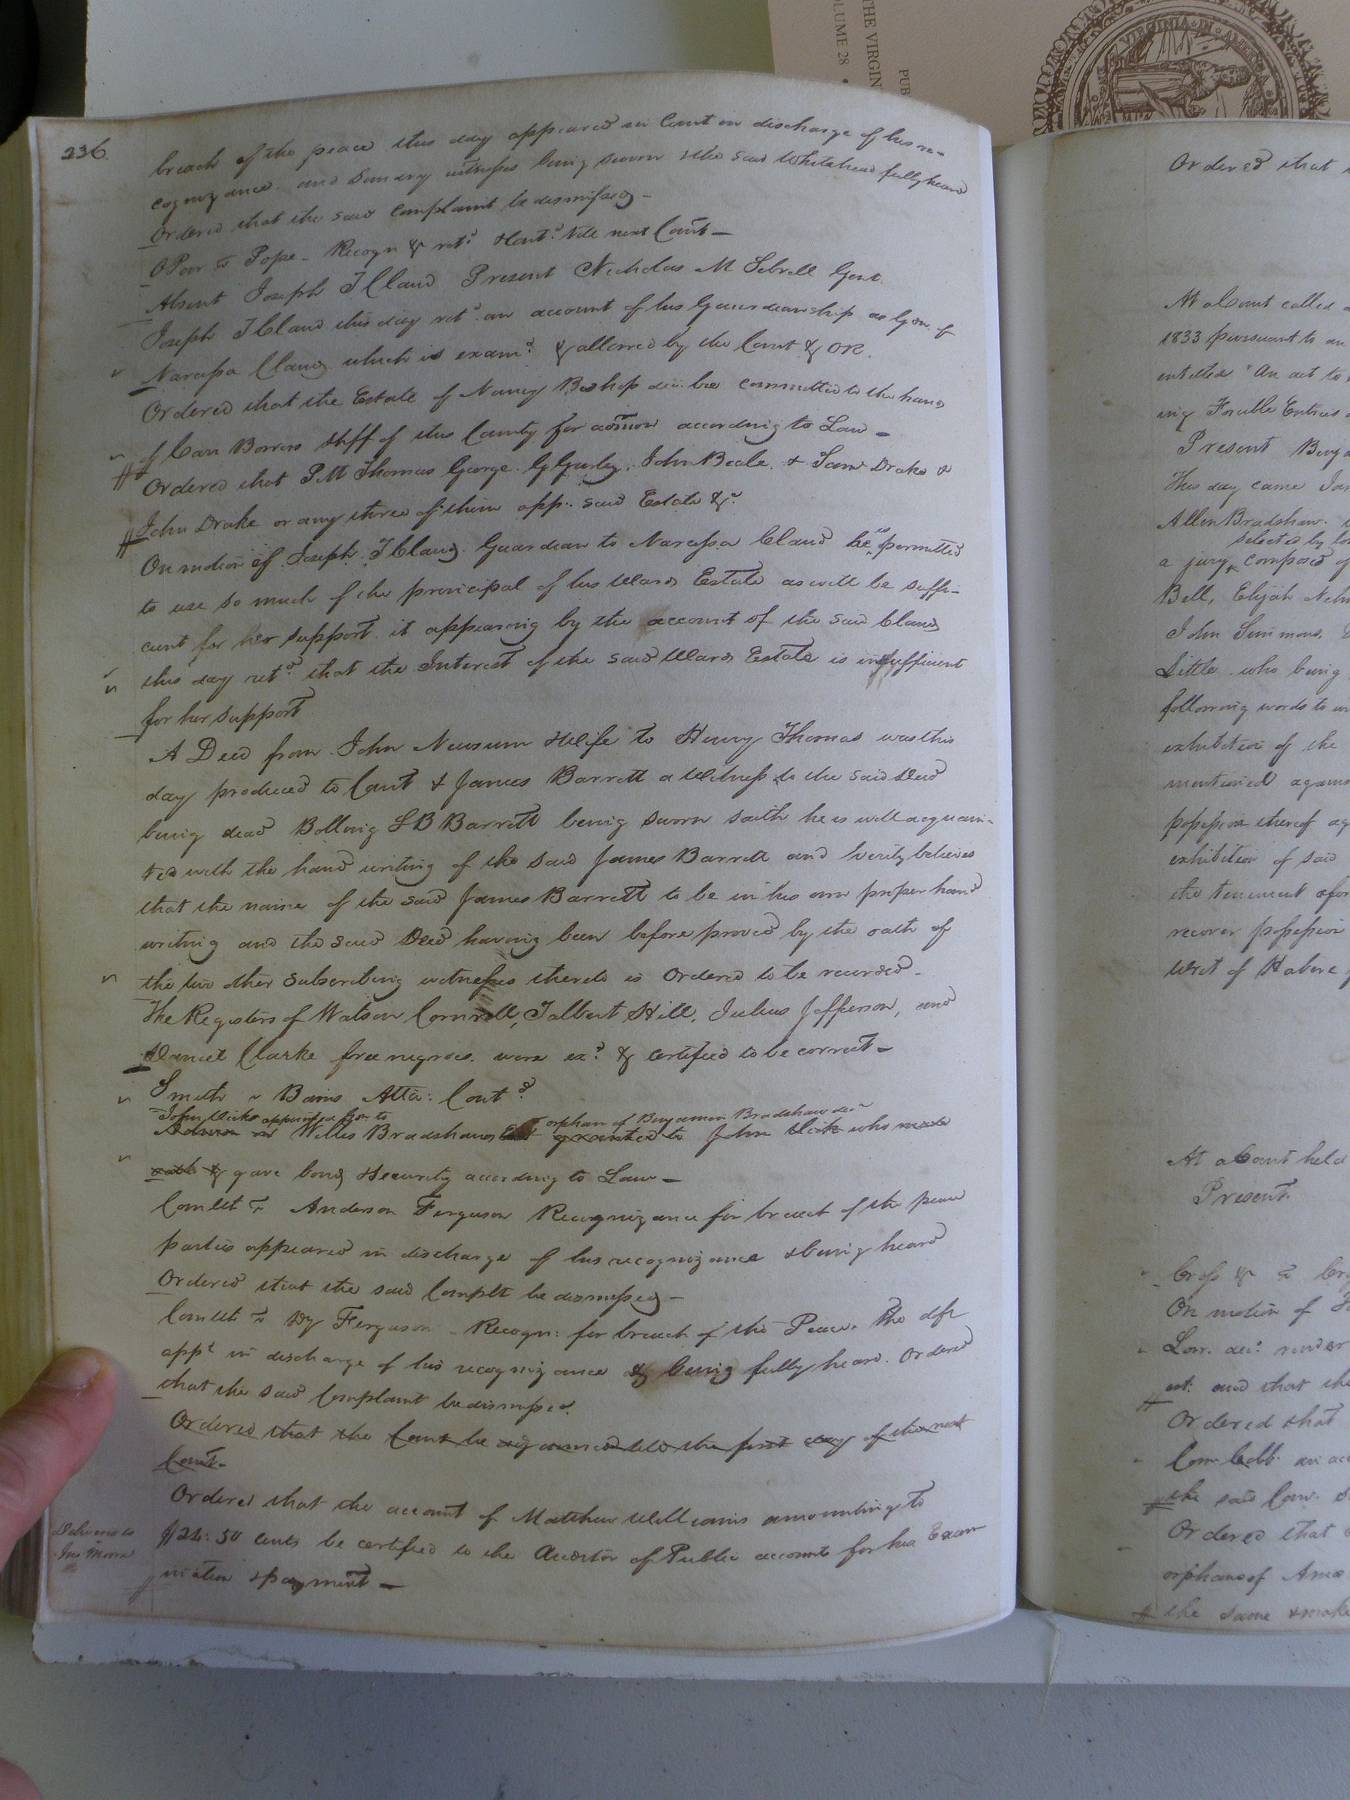 THE VIRGIN
VOLUME 28 •
PUB
VIRGINIA · IN · AMERICA
236
breach of the peace this day appeared in Court in discharge of his re-
cognizance and Sundry witnesses being sworn & the said Whitehead fully heard
Ordered that the said complaint be dismissed -
Recogn & retd & contd till next Court -
Absent Joseph T Claud Present Nicholas M Sebrell Gent
Joseph T Claud this day retd an account of his Guardianship as Gdn of
Narcissa Claud which is examd & allowed by the Court & OR.
Ordered that the Estate of Nancy Bishop decd be committed to the hands
of Carr Bowers Shff of this County for admon according to Law -
Ordered that P.M Thomas George G Gurley, John Beale, & Saml Drake &
John Drake or any three of them app. said Estate &c
On motion of Joseph T Claud Guardian to Narcissa Claud he is permitted
to use so much of the principal of his Wards Estate as will be suffi-
cient for her support it appearing by the account of the said Claud
this day retd that the Interest of the said Wards Estate is insufficient
for her support
A Deed from John Newsum & Wife to Henry Thomas was this
day produced to Court & James Barrett a Witness to the said Deed
being dead Bolling L B Barrett being sworn saith he is well acquain-
ted with the hand writing of the said James Barrett and Verily believes
that the name of the said James Barrett to be in his own proper hand
writing and the said Deed having been before proved by the oath of
the two other subscribing witnesses thereto is Ordered to be recorded -
The Registers of Watson Cornwell, Talbert Hill, Julius Jefferson, and
Daniel Clarke free negroes were exd & certified to be correct -
Smith v Bains Atta: Contd
John Vick appointed Gdn to orphan of Benjamin Bradshaw decd
Willis Bradshaw granted to John Vick who made
oath & gave bond & Security according to Law -
Comlth vs Anderson Ferguson Recognizance for breach of the peace
parties appeared in discharge of his recognizance & being heard
Ordered that the said Complt be dismissed -
Comlth vs Dy Ferguson - Recogn: for breach of the Peace. The deft
appd in discharge of his recognizance & being fully heard. Ordered
that the said Complaint be dismissed.
Ordered that the Court be adjourned till the first day of the next
Court -
Ordered that the account of Matthew Williams amounting to
$24:50 cents be certified to the Auditor of Public accounts for his Exam
ination & payment -
Delivered to
Jno Moore
Ordered that
At a Court called
1833 pursuant to an
entitled "An act to
ing Forcible Entries
Present Benj
This day came
Allen Bradshaw
selected by
a jury composed of
Bell, Elijah
John Simmons,
Little who being
following words to
exhibition of the
mentioned against
possession thereof
exhibition of said
the tenement afor
recover possession
Writ of Habere
At a Court held
Present
On motion of
and that the
Ordered that
an acc
the said
Ordered that
orphans of
the same & make